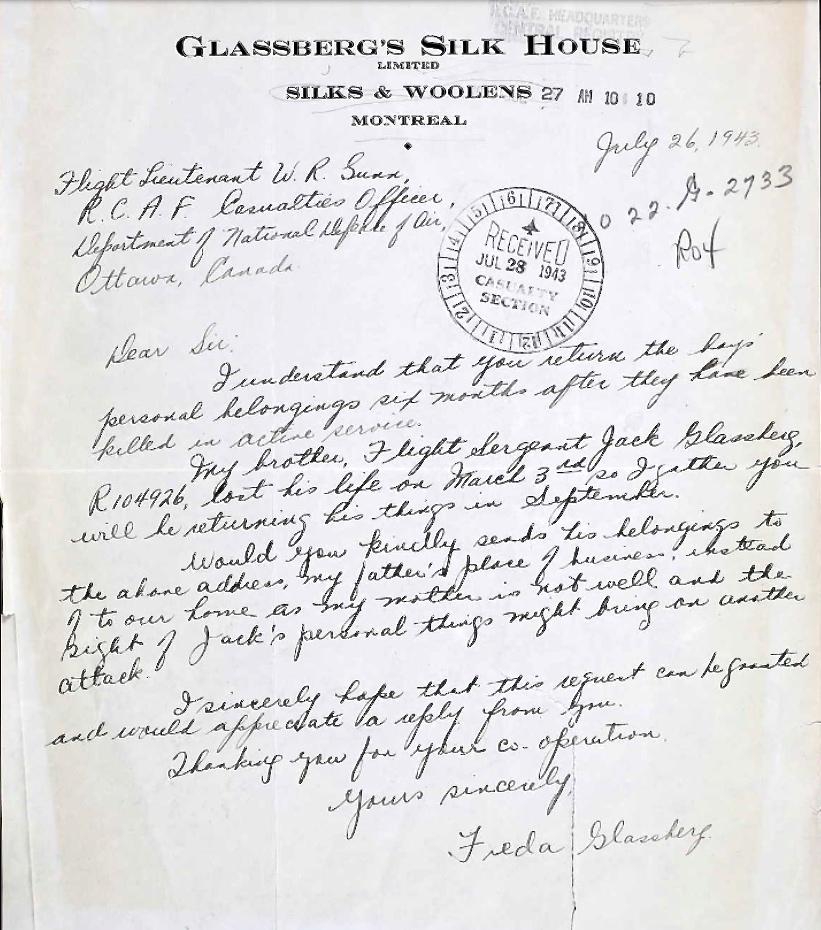 R.C.A.F. HEADQUARTERS
CENTRAL REGISTRY
GLASSBERG'S SILK HOUSE
LIMITED
SILKS & WOOLENS
27 AM 10 10
MONTREAL
July 26, 1943.
Flight Lieutenant W. R. Gunn,
R. C. A. F. Casualties Officer,
Department of National Defense of Air,
Ottawa, Canada.
22. G. 2733
R04
RECEIVED
JUL 28 1943
CASUALTY
SECTION
Dear Sir:
I understand that you return the boys'
personal belongings six months after they have been
killed in active service.
My brother, Flight Sergeant Jack Glassberg,
R104926, lost his life on March 3rd so I gather you
will be returning his things in September.
Would you kindly sends his belongings to
the above address, my father's place of business, instead
of to our home as my mother is not well and the
sight of Jack's personal things might bring on another
attack.
I sincerely hope that this request can be granted
and would appreciate a reply from you.
Thanking you for your co-operation.
Yours sincerely,
Freda Glassberg.